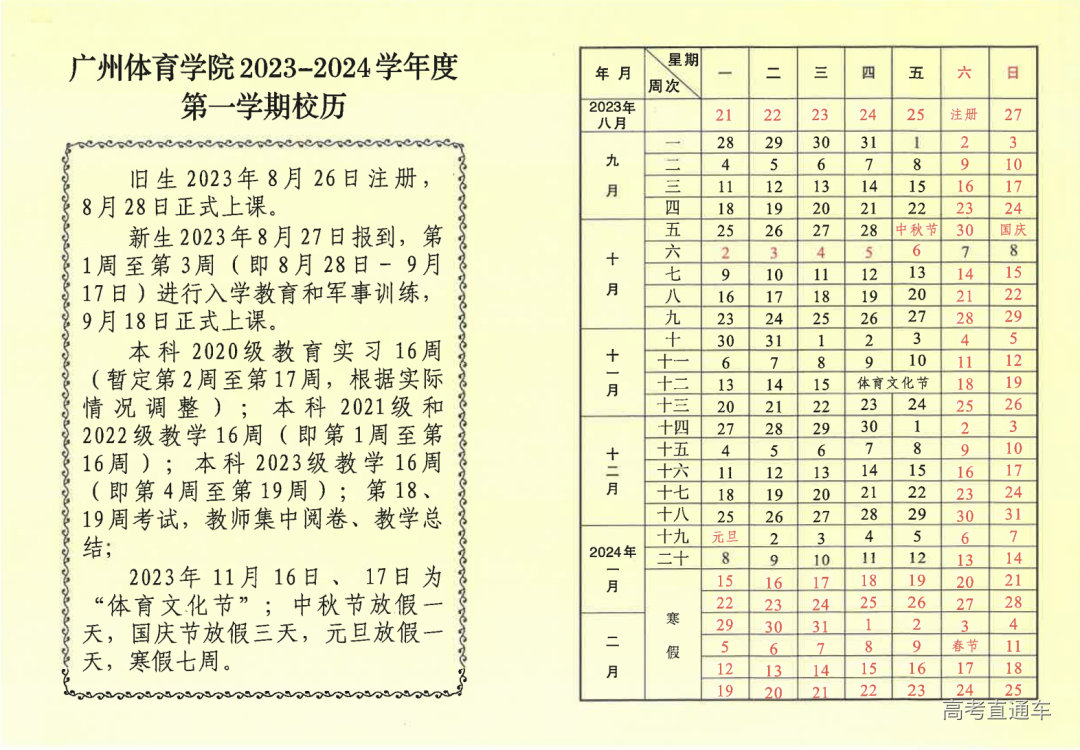 广州体育学院2023-2024学年度
第一学期校历
旧生2023年8月26日注册，
8月28日正式上课。
新生2023年8月27日报到，第
1周至第3周（即8月28日－9月
17日）进行入学教育和军事训练，
9月18日正式上课。
本科2020级教育实习16周
（暂定第2周至第17周，根据实际
情况调整）；本科2021级和
2022级教学16周（即第1周至第
16周）；本科2023级教学16周
（即第4周至第19周）；第18、
19周考试，教师集中阅卷、教学总
结；
2023年11月16日、17日为
“体育文化节”；中秋节放假一
天，国庆节放假三天，元旦放假一
天，寒假七周。
年月 星期 周次 一 二 三 四 五 六 日
2023年八月 21 22 23 24 25 注册 27
九月 一 28 29 30 31 1 2 3
二 4 5 6 7 8 9 10
三 11 12 13 14 15 16 17
四 18 19 20 21 22 23 24
十月 五 25 26 27 28 中秋节 30 国庆
六 2 3 4 5 6 7 8
七 9 10 11 12 13 14 15
八 16 17 18 19 20 21 22
九 23 24 25 26 27 28 29
十一月 十 30 31 1 2 3 4 5
十一 6 7 8 9 10 11 12
十二 13 14 15 体育文化节 18 19
十三 20 21 22 23 24 25 26
十二月 十四 27 28 29 30 1 2 3
十五 4 5 6 7 8 9 10
十六 11 12 13 14 15 16 17
十七 18 19 20 21 22 23 24
十八 25 26 27 28 29 30 31
2024年一月 十九 元旦 2 3 4 5 6 7
二十 8 9 10 11 12 13 14
寒假 15 16 17 18 19 20 21
22 23 24 25 26 27 28
二月 29 30 31 1 2 3 4
5 6 7 8 9 春节 11
12 13 14 15 16 17 18
19 20 21 22 23 24 25
高考直通车